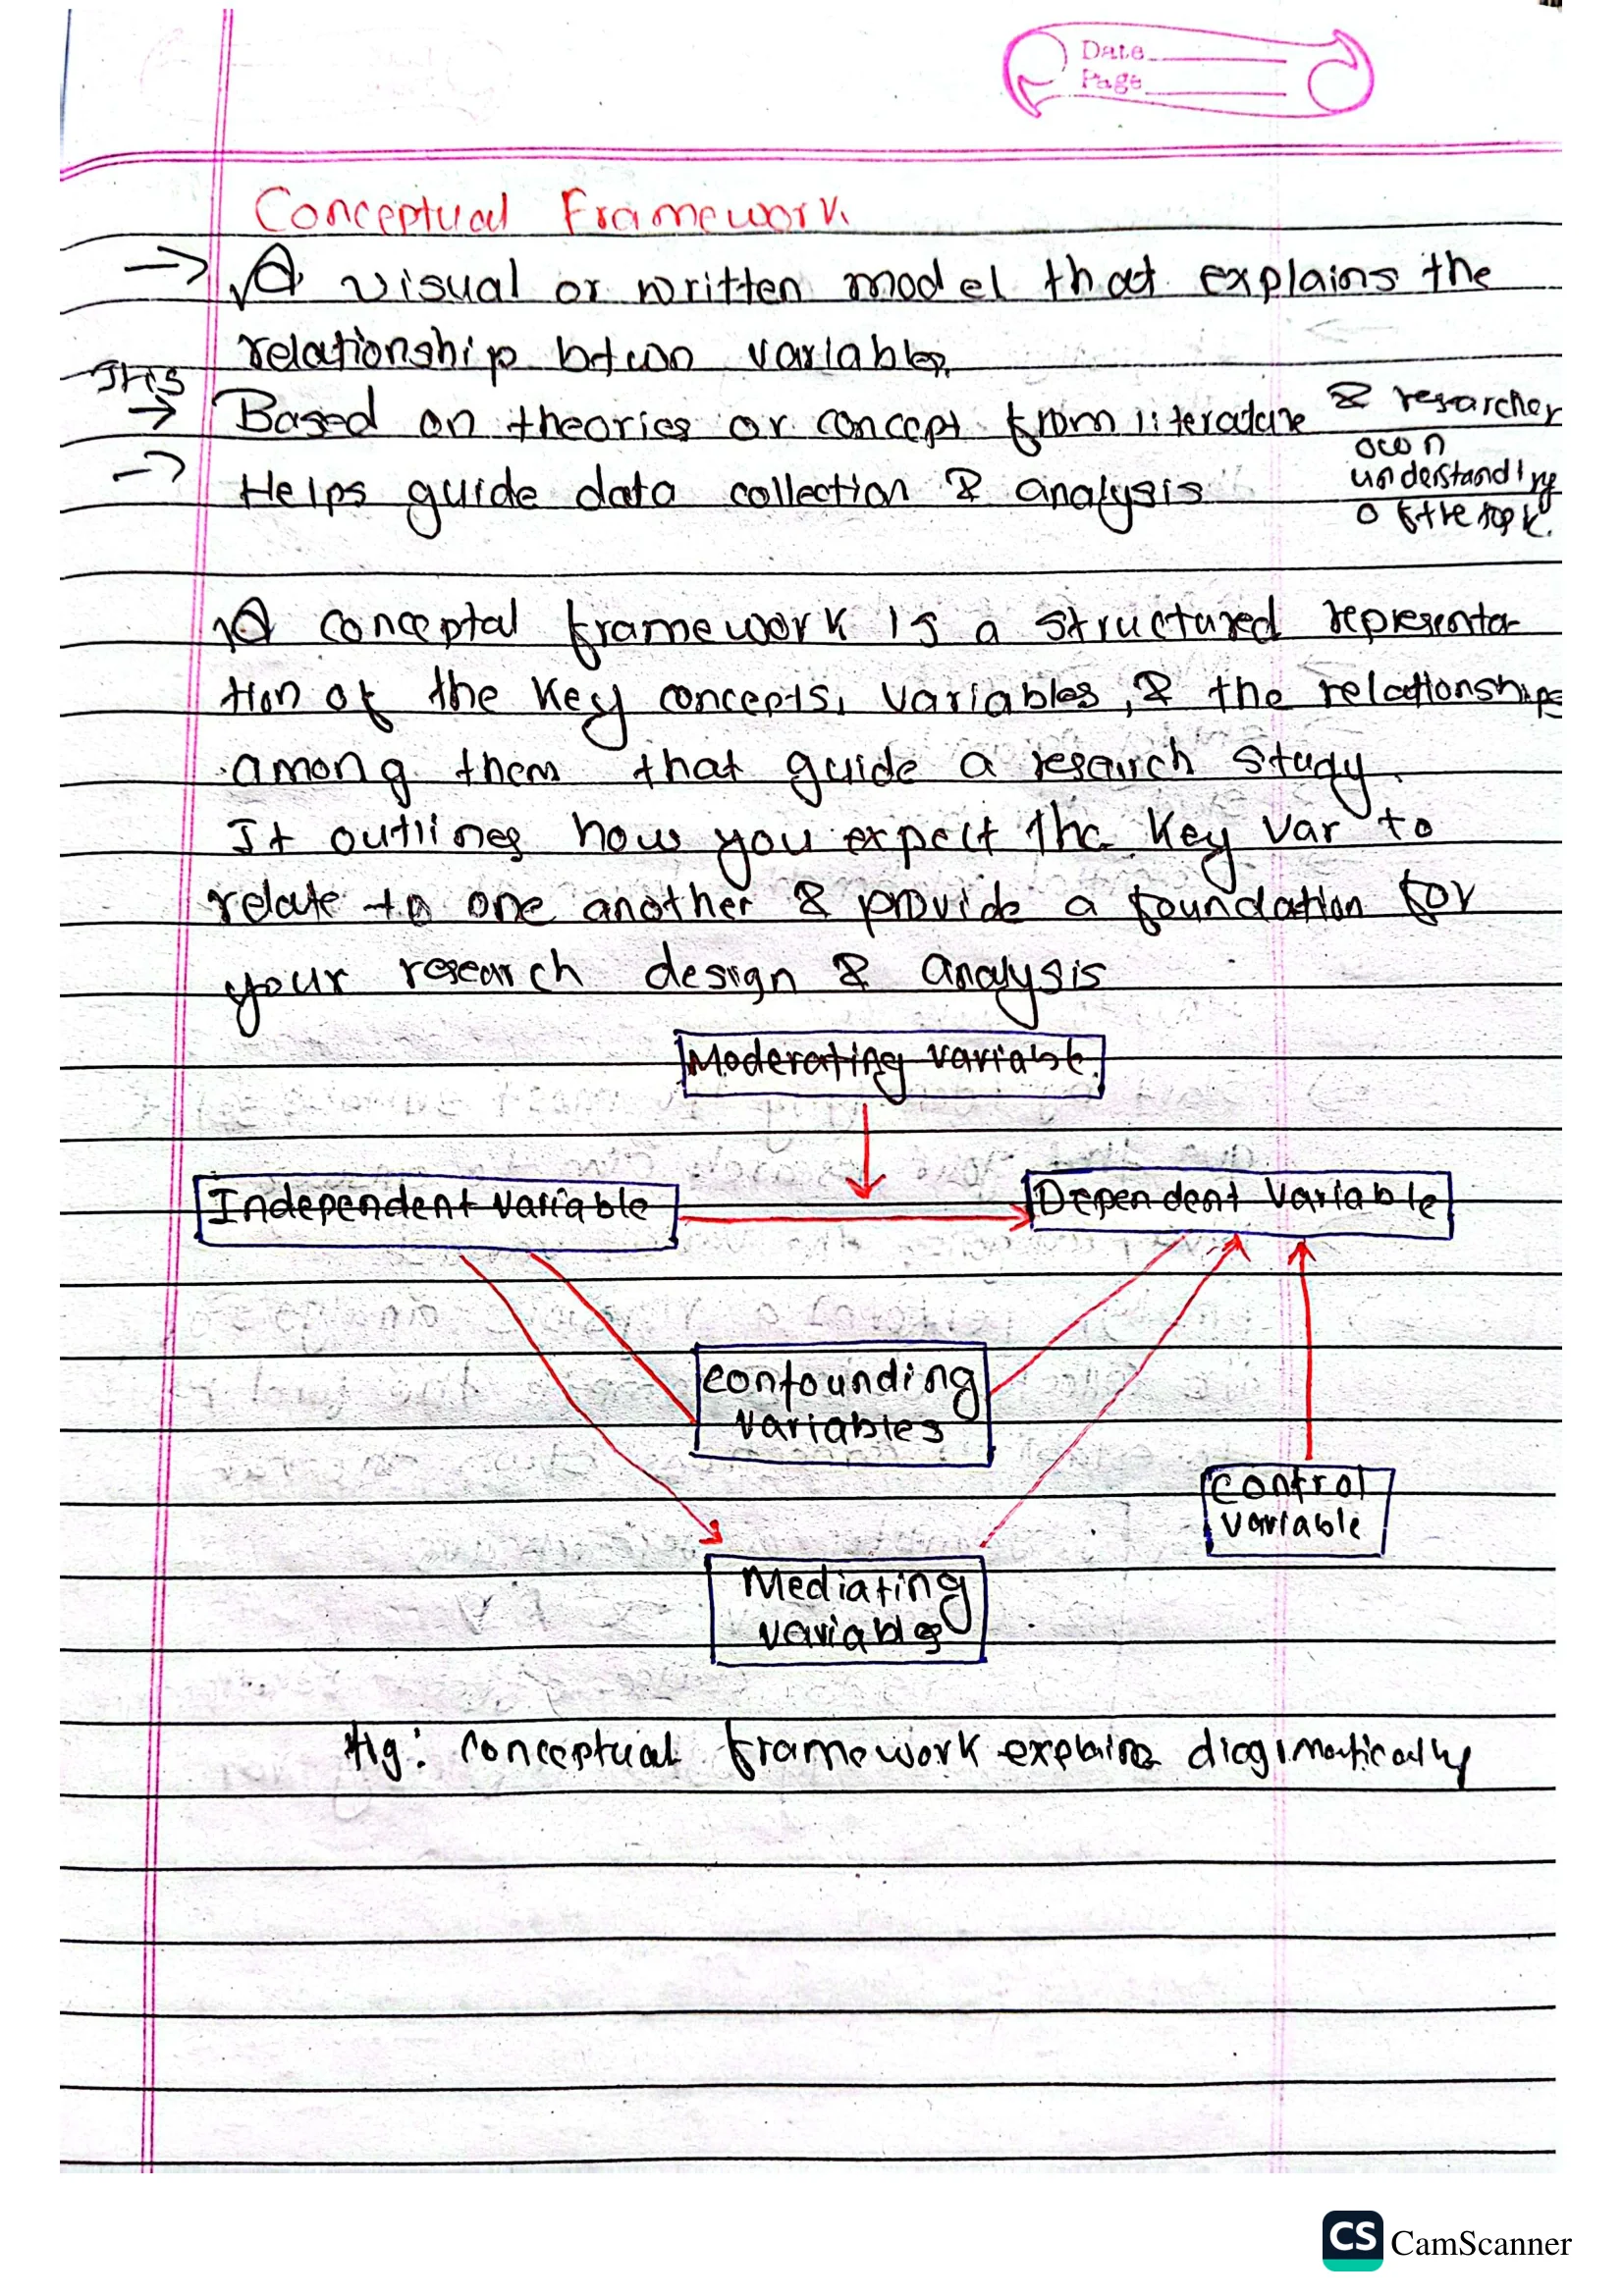 Date
Page
Conceptual Framework
→ A visual or written model that explains the
relationship btwn variables.
It is
→ Based on theories or concept from literature & researcher
own
understanding
of the topic.
→ Helps guide data collection & analysis
A conceptal framework is a structured representa-
tion of the key concepts, variables, & the relationships
among them that guide a research study.
It outlines how you expect the key var to
relate to one another & provide a foundation for
your research design & analysis
Moderating variable.
Independent variable
Dependent variable
confounding
variables
control
variable
Mediating
variables
fig: conceptual framework explains diagrmatically
CS CamScanner